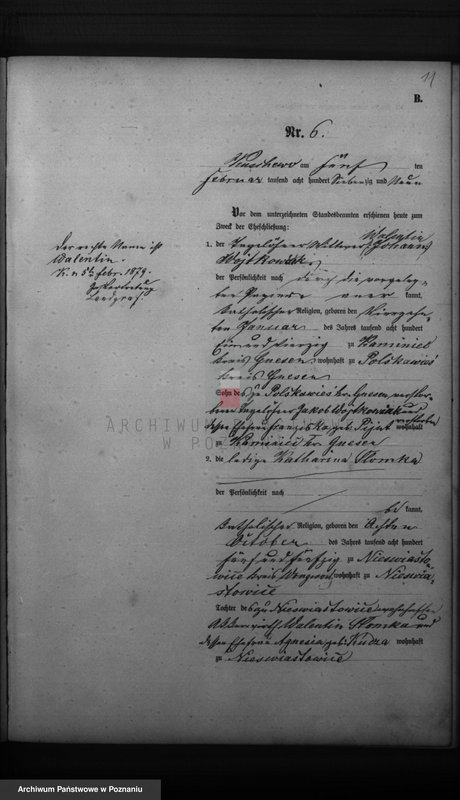 11
B.
Nr. 6.
am fünf ten
Februar tausend acht hundert Siebenzig und Neun
Vor dem unterzeichneten Standesbeamten erschienen heute zum
Zweck der Eheschließung:
Valentin
1. der Johann
Wojtkowiak
der Persönlichkeit nach durch die vorgeleg-
ten Papiere aner kannt,
katholischer Religion, geboren den Vierzehn-
ten Januar des Jahres tausend acht hundert
und vierzig zu Kaminiec
Kreis Gnesen, wohnhaft zu Polskawies
Kreis Gnesen
Sohn des zu Polskawies Kr. Gnesen verstor-
benen Jakob Wojtkowiak und
dessen Ehefrau Franziska geb. wohnhaft
verstorben
zu Kaminiec Kr. Gnesen
2. die ledige Katharina Slomka
der Persönlichkeit nach
be kannt,
katholischer Religion, geboren den Achten
October des Jahres tausend acht hundert
fünf und fünfzig zu Nieswiasto-
wice Kreis Wongrowitz, wohnhaft zu Nieswia-
stowice
Tochter des zu Nieswiastowice wohnhaften
Valentin Slomka und
dessen Ehefrau Agnesia geb. Kudza wohnhaft
zu Nieswiastowice
Der rechte Name ist
Valentin.
K. n 5ten Febr. 1879.
Der Standesbeamte
ARCHIWUM
W PO
Archiwum Państwowe w Poznaniu